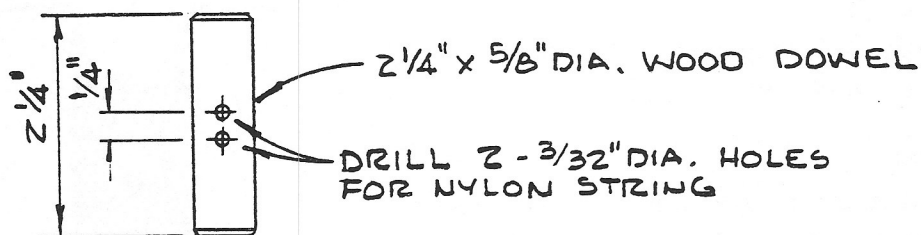 2 1/4"
1/4"
2 1/4" x 5/8" DIA. WOOD DOWEL
DRILL 2 - 3/32" DIA. HOLES
FOR NYLON STRING